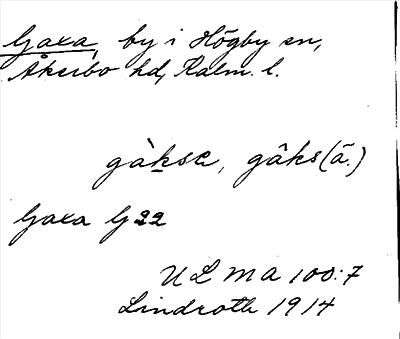 Gaxa, by i Högby sn,
Åkerbo hd, Kalm. l.
gàkse, gâks(ā.)
Gaxa G22
ULMA 100:7
Lindroth 1914